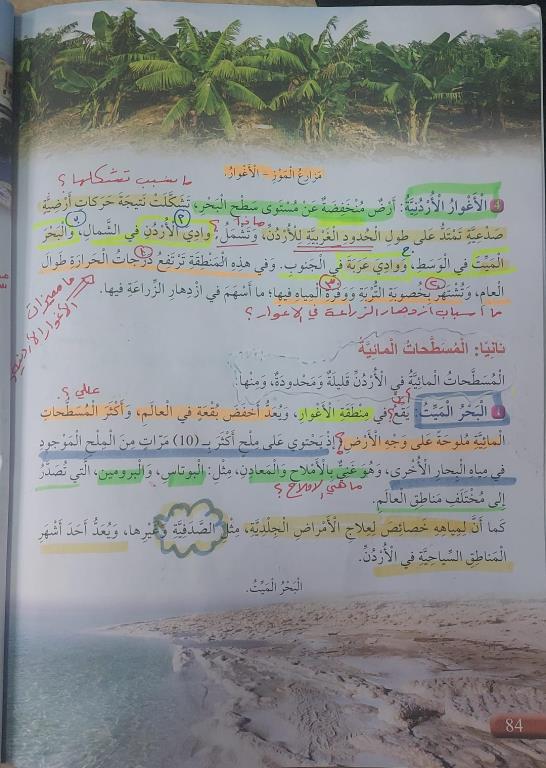 مَزارِعُ الْمَوْزِ – الْأَغْوارُ.
ما سبب تشكلها؟
الْأَغْوارُ الْأُرْدُنِيَّةُ: أَرْضٌ مُنْخَفِضَةٌ عَنْ مُسْتَوى سَطْحِ الْبَحْرِ، تَشَكَّلَتْ نَتيجَةَ حَرَكاتٍ أَرْضِيَّةٍ
ماذا
صَدْعِيَّةٍ تَمْتَدُّ عَلى طولِ الْحُدودِ الْغَرْبِيَّةِ لِلْأُرْدُنِّ، وَتَشْمَلُ؟ وادِيَ الْأُرْدُنِّ في الشَّمالِ، وَالْبَحْرَ
الْمَيِّتَ في الْوَسَطِ، وَوادِيَ عَرَبَةَ في الْجَنوبِ. وَفي هذِهِ الْمَنْطِقَةِ تَرْتَفِعُ دَرَجاتُ الْحَرارَةِ طَوالَ
الْعامِ، وَتُشْتَهَرُ بِخُصوبَةِ التُّرْبَةِ وَوَفْرَةِ الْمِياهِ فيها؛ ما أَسْهَمَ في ازْدِهارِ الزِّراعَةِ فيها.
ما أسباب ازدهار الزراعة في الاغوار؟
ما مميزات
الأغوار الأردنية
ثانِيًا: الْمُسَطَّحاتُ الْمائِيَّةُ
الْمُسَطَّحاتُ الْمائِيَّةُ في الْأُرْدُنِّ قَليلَةٌ وَمَحْدودَةٌ، وَمِنْها:
أين
عللي؟
الْبَحْرُ الْمَيِّتُ: يَقَعُ؟ في مِنْطَقَةِ الْأَغْوارِ، وَيُعَدُّ أَخْفَضَ بُقْعَةٍ في الْعالَمِ، وَأَكْثَرَ الْمُسَطَّحاتِ
الْمائِيَّةِ مُلوحَةً عَلى وَجْهِ الْأَرْضِ؛ إِذْ يَحْتَوي عَلى مِلْحٍ أَكْثَرَ بِـ (10) مَرّاتٍ مِنَ الْمِلْحِ الْمَوْجودِ
في مِياهِ الْبِحارِ الْأُخْرى، وَهُوَ غَنِيٌّ بِالْأَمْلاحِ وَالْمَعادِنِ، مِثْلِ: الْبوتاسِ، وَالْبرومينِ، الَّتي تُصَدَّرُ
ما هي الاملاح؟
إِلى مُخْتَلَفِ مَناطِقِ الْعالَمِ.
كَما أَنَّ لِمِياهِهِ خَصائِصَ لِعِلاجِ الْأَمْراضِ الْجِلْدِيَّةِ، مِثْلَ الصَّدَفِيَّةِ وَغَيْرِها، وَيُعَدُّ أَحَدَ أَشْهَرِ
الْمَناطِقِ السِّياحِيَّةِ في الْأُرْدُنِّ.
الْبَحْرُ الْمَيِّتُ.
84